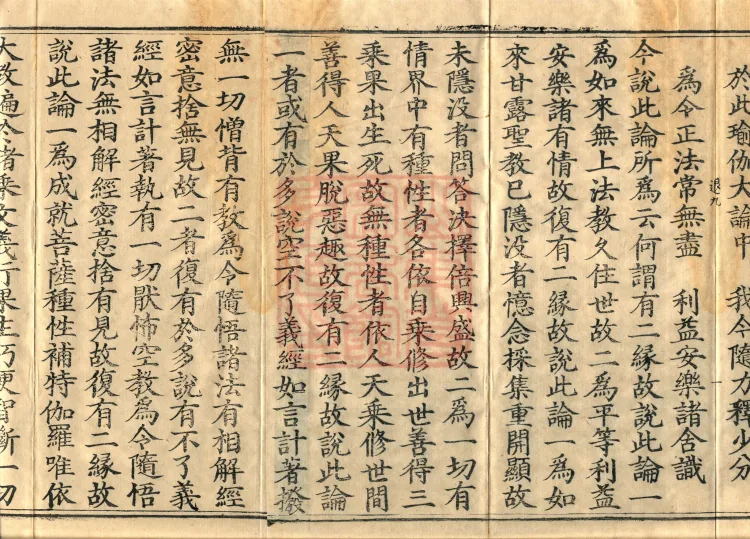 於此瑜伽大論中　我今隨力釋少分
退九
爲令正法常無盡　利益安樂諸含識
今說此論所爲云何謂有二緣故說此論一
爲如來無上法教久住世故二爲平等利益
安樂諸有情故復有二緣故說此論一爲如
來甘露聖教已隱没者憶念採集重開顯故
未隱没者問答決擇倍興盛故二爲一切有
情界中有種性者各依自乘修出世善得三
乘果出生死故無種性者依人天乘修世間
善得人天果脫惡趣故復有二緣故說此論
一者或有於多說空不了義經如言計著撥
無一切憎背有教爲令隨悟諸法有相解經
密意捨無見故二者復有於多說有不了義
經如言計著執有一切猒怖空教爲令隨悟
諸法無相解經密意捨有見故復有二緣故
說此論一爲成就菩薩種性補特伽羅唯依
大教遍於諸乘文義行果生巧便智斷一切